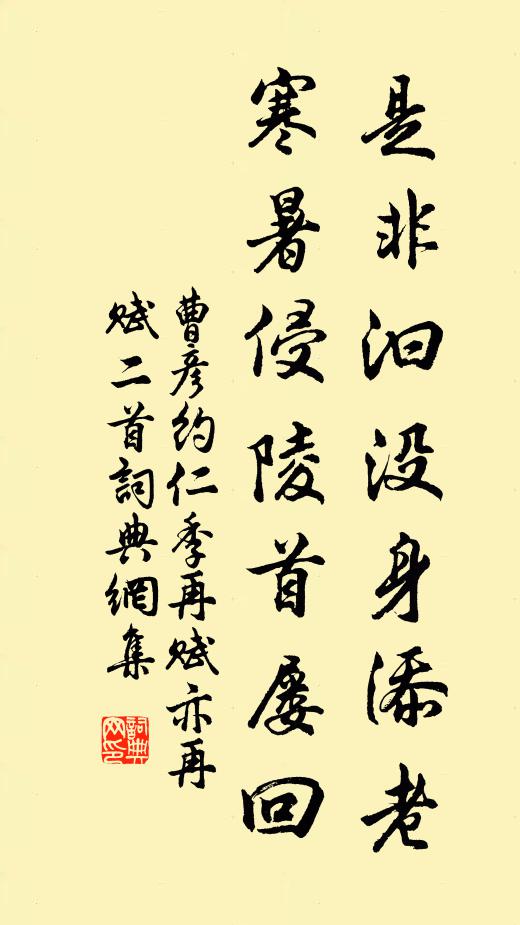 是非汩没身添老
寒暑侵陵首屡回
曹彦約仁季再賦亦再
賦二首詞典網集
詞典
網印